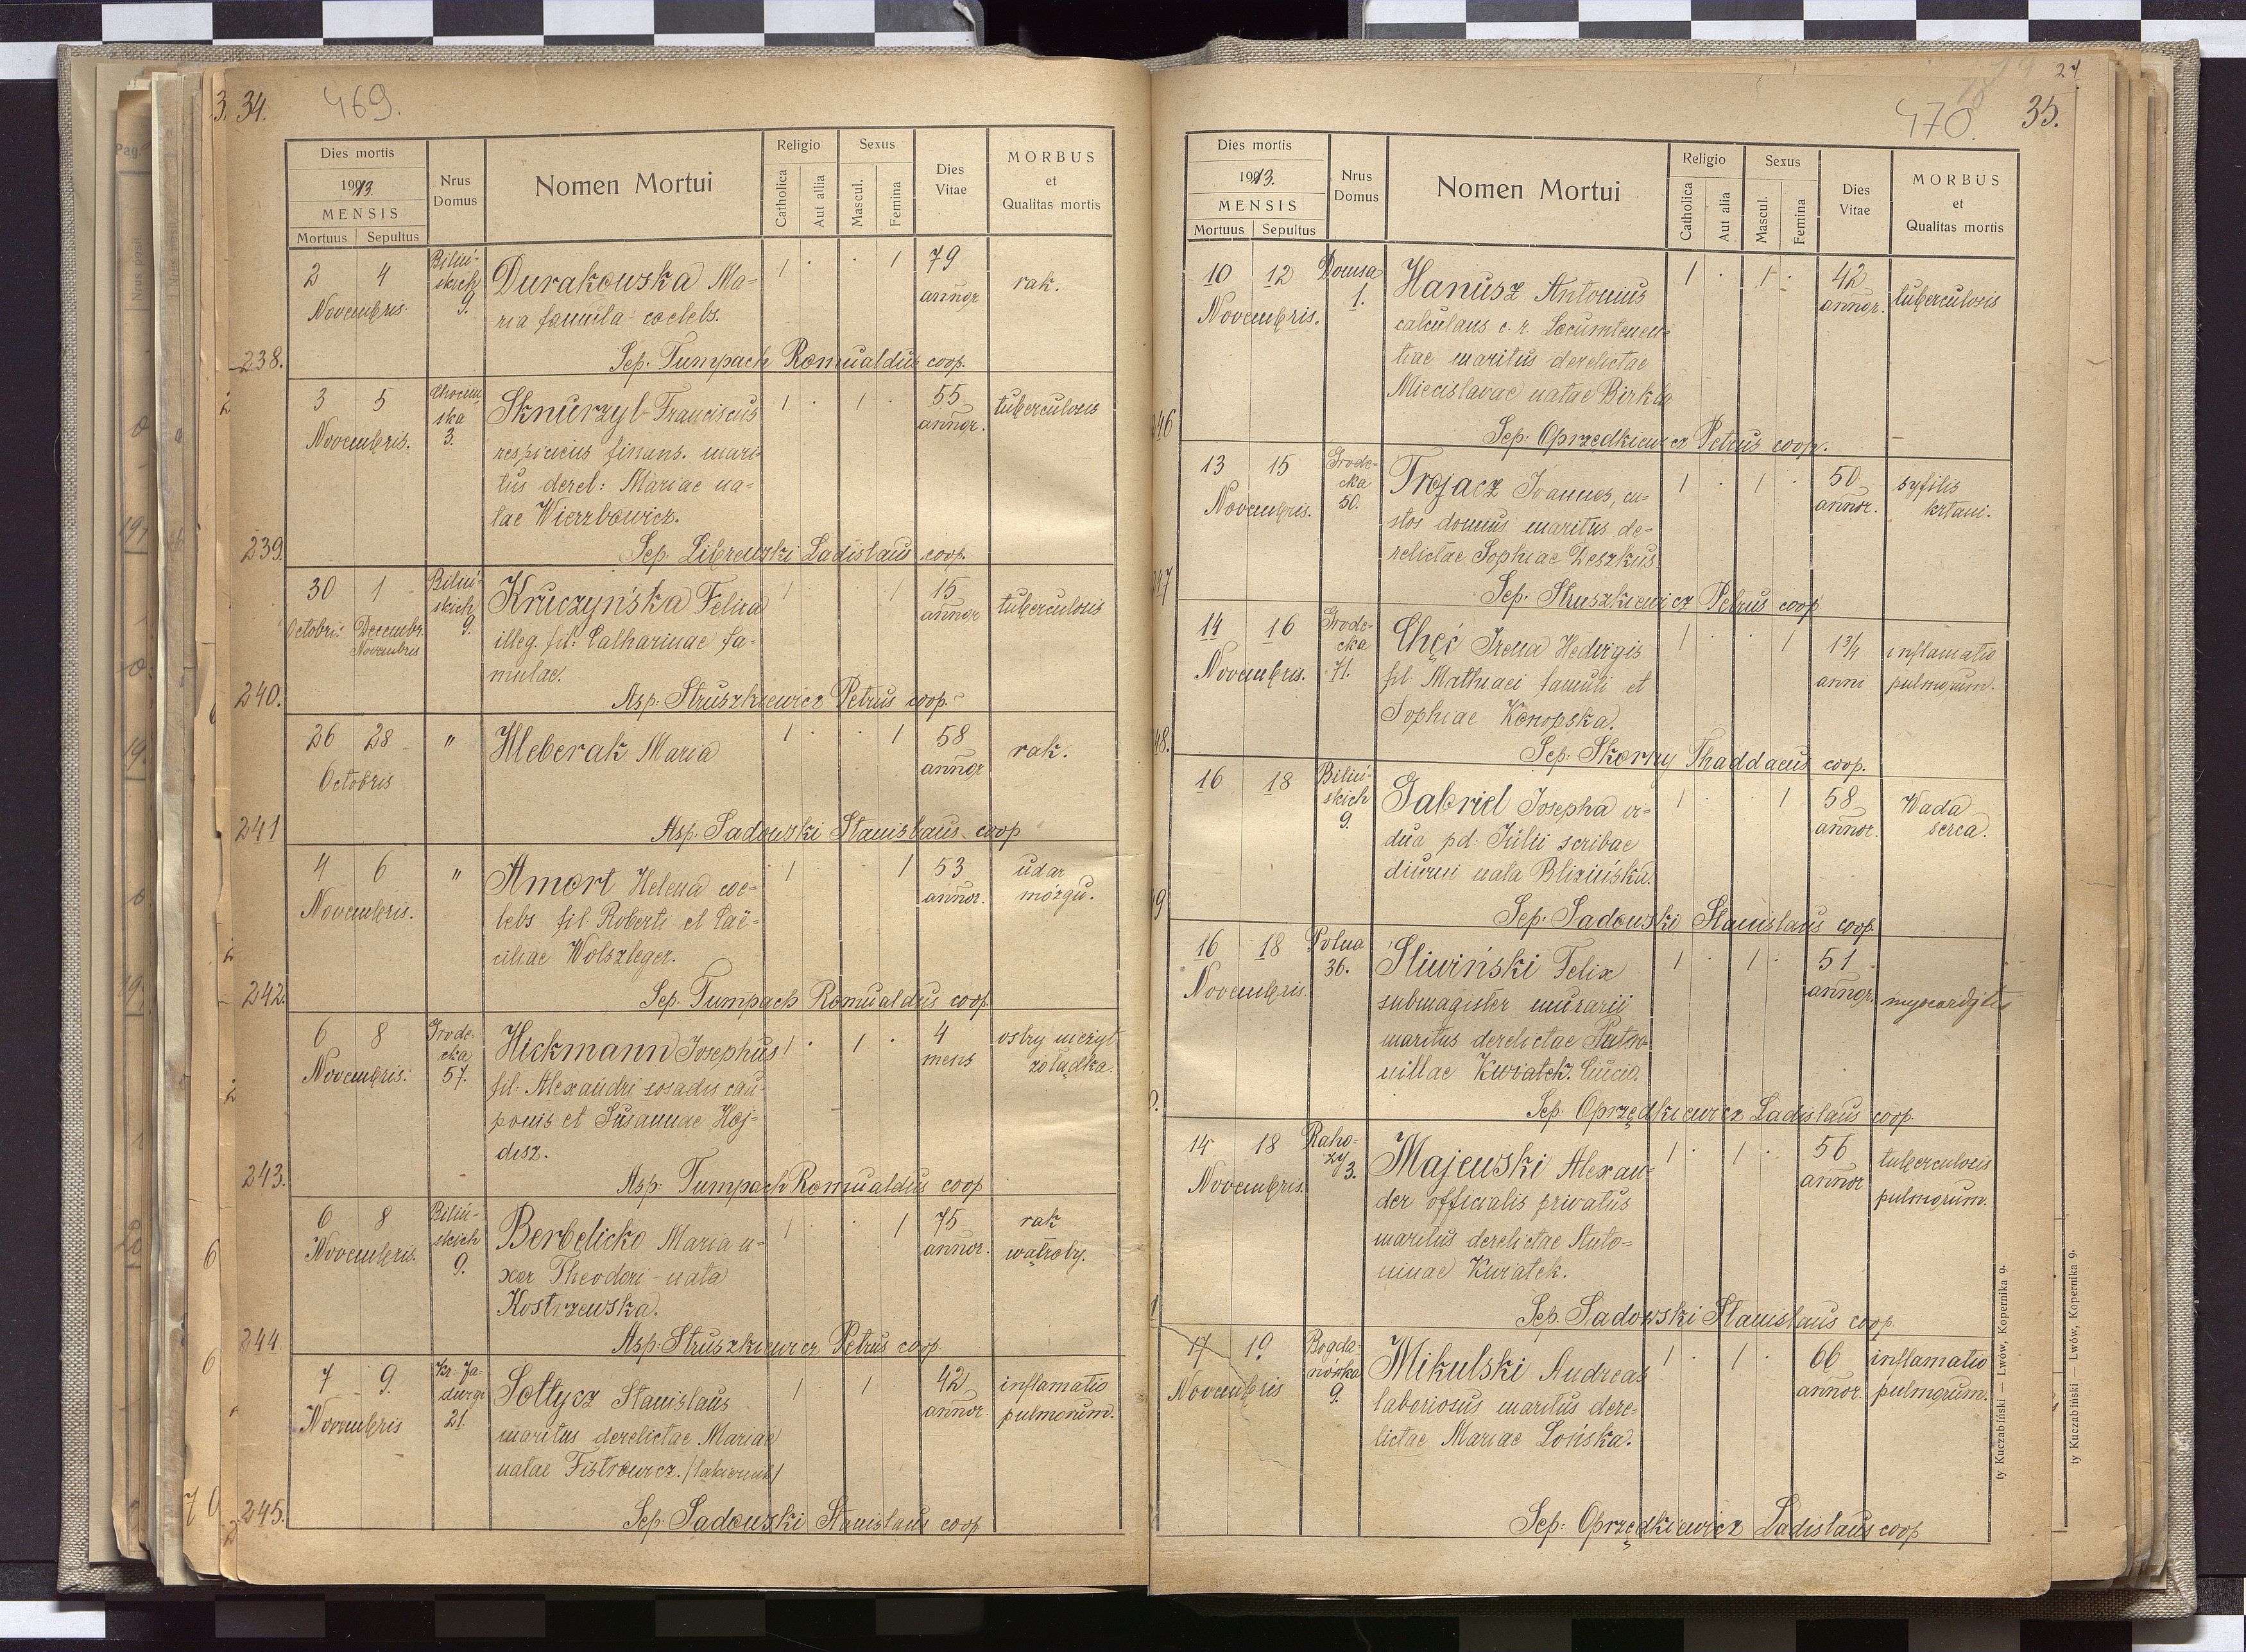 3. 34. 469.
Dies mortis
1913.
MENSIS
Mortuus Sepultus
Nrus Domus
Nomen Mortui
Religio
Catholica Aut alia
Sexus
Mascul. Femina
Dies Vitae
MORBUS
et
Qualitas mortis
2 4 Biliń- Durakowska Ma- 1 . . 1 79 rak.
Novembris. skich 9. ria famula coelebs. annor
238. Sep. Tumpach Romualdus coop.
3 5 Chocim Sknurzył Franciscus 1 . 1 . 55 tuberculosis
Novembris. ska 3. respiciens finans. mari annor.
tus derel: Mariae na-
tae Wierzbowicz.
239. Sep. Librewski Ladislaus coop.
30 1 Biliń- Kruczyńska Felixa 1 . . 1 15 tuberculosis
Octobris Decembr. skich 9. illeg. fil: Catharinae fa- annor
Novembris
mulae.
240. Asp. Struszkiewicz Petrus coop.
26 28 " Hleberak Maria 1 . . 1 58 rak.
Octobris annor
241 Asp. Sadowski Stanislaus coop
4 6 " Amort Helena coe- 1 . . 1 53 udar
Novembris. lebs fil. Roberti et Cae- annor. mózgu.
ciliae Wolszleger.
242. Sep. Tumpach Romualdus coop.
6 8 Grode- Hickmann Josephus 1 . 1 . 4 ostry nieżyt
Novembris. cka 57. fil. Alexandri sosadis cau- mens żołądka.
ponis et Susannae Haj-
disz.
243. Asp. Tumpach Romualdus coop
6 8 Biliń- Berbelicko Maria u- 1 . . 1 75 rak
Novembris. skich 9. xor Theodori nata annor. wątroby.
Kostrzewska.
244 Asp. Struszkiewicz Petrus coop.
7 9. Kr. Ja- Sołtycz Stanislaus 1 . 1 . 42 inflamatio
Novembris dwigi 21. maritus derelictae Mariae annor. pulmorum.
natae Fistrowicz.
245. Sep. Sadowski Stanislaus coop
470. 24 35.
Dies mortis
1913.
MENSIS
Mortuus Sepultus
Nrus Domus
Nomen Mortui
Religio
Catholica Aut alia
Sexus
Mascul. Femina
Dies Vitae
MORBUS
et
Qualitas mortis
10 12 Domsa 1. Hanusz Antonius 1 . 1 . 42 tuberculosis
Novembris. calculans c. r. Locumtenen- annor.
tiae maritus derelictae
Miecislavae natae Birkla
46 Sep. Oprzędkiewicz Petrus coop.
13 15 Grode- Trojacz Joannes, cu- 1 . 1 . 50 syfilis
Novembris. cka 50. stos domus maritus de- annor. krtani.
relictae Sophiae Deszkus.
47 Sep. Struszkiewicz Petrus coop.
14 16 Grode- Chęć Irena Hedvigis 1 . . 1 1 3/4 inflamatio
Novembris. cka 71. fil. Mathiaei famuli et anni pulmorum.
Sophiae Konopska.
48. Sep. Skorny Thaddaeus coop.
16 18 Biliń- Gabriel Josepha vi- 1 . . 1 58 Wada
skich 9. dua pd. Julii scribae annor. serca.
diurni nata Blizińska.
9 Sep. Sadowski Stanislaus coop.
16 18 Polna Śliwiński Felix 1 . 1 . 51
Novembris. 36. submagister murarii annor. myocarditis
maritus derelictae Petro-
nillae Kwiatek.
Sep. Oprzędkiewicz Ladislaus coop.
14 18 Raho- Majewski Alexan- 1 . 1 . 56 tuberculosis
Novembris. zy 3. der officialis privatus annor pulmorum.
maritus derelictae Anto-
ninae Kwiatek.
1 Sep. Sadowski Stanislaus coop
17 19 Bogda- Mikulski Andreas 1 . 1 . 66 inflamatio
Novembris nówka 9. laboriosus maritus dere- annor. pulmorum.
lictae Mariae Łońska.
Sep. Oprzędkiewicz Ladislaus coop
ty Kuczabiński — Lwów, Kopernika 9.
ty Kuczabiński — Lwów, Kopernika 9.